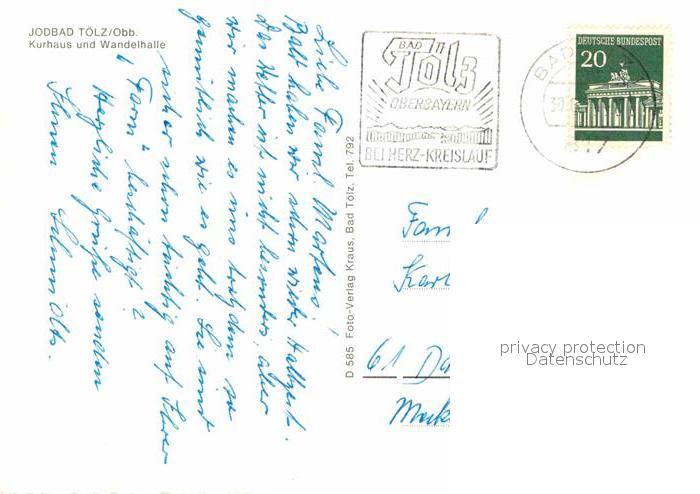 JODBAD TÖLZ/Obb.
Kurhaus und Wandelhalle
Liebe Famil. Martens!
Bald haben wir schon wieder Halbzeit.
Das Wetter ist nicht besonders, aber
wir machen es uns trotzdem so
gemütlich wie es geht. Sie sind
sicher schon tüchtig auf Ihrer
" Farm " beschäftigt?
Herzliche Grüße senden
Ihnen
D 585 Foto-Verlag Kraus, Bad Tölz, Tel. 792
BAD
Tölz
OBERBAYERN
BEI HERZ-KREISLAUF
BAD
DEUTSCHE BUNDESPOST
20
Fam
Karl
61 Da
privacy protection
Datenschutz